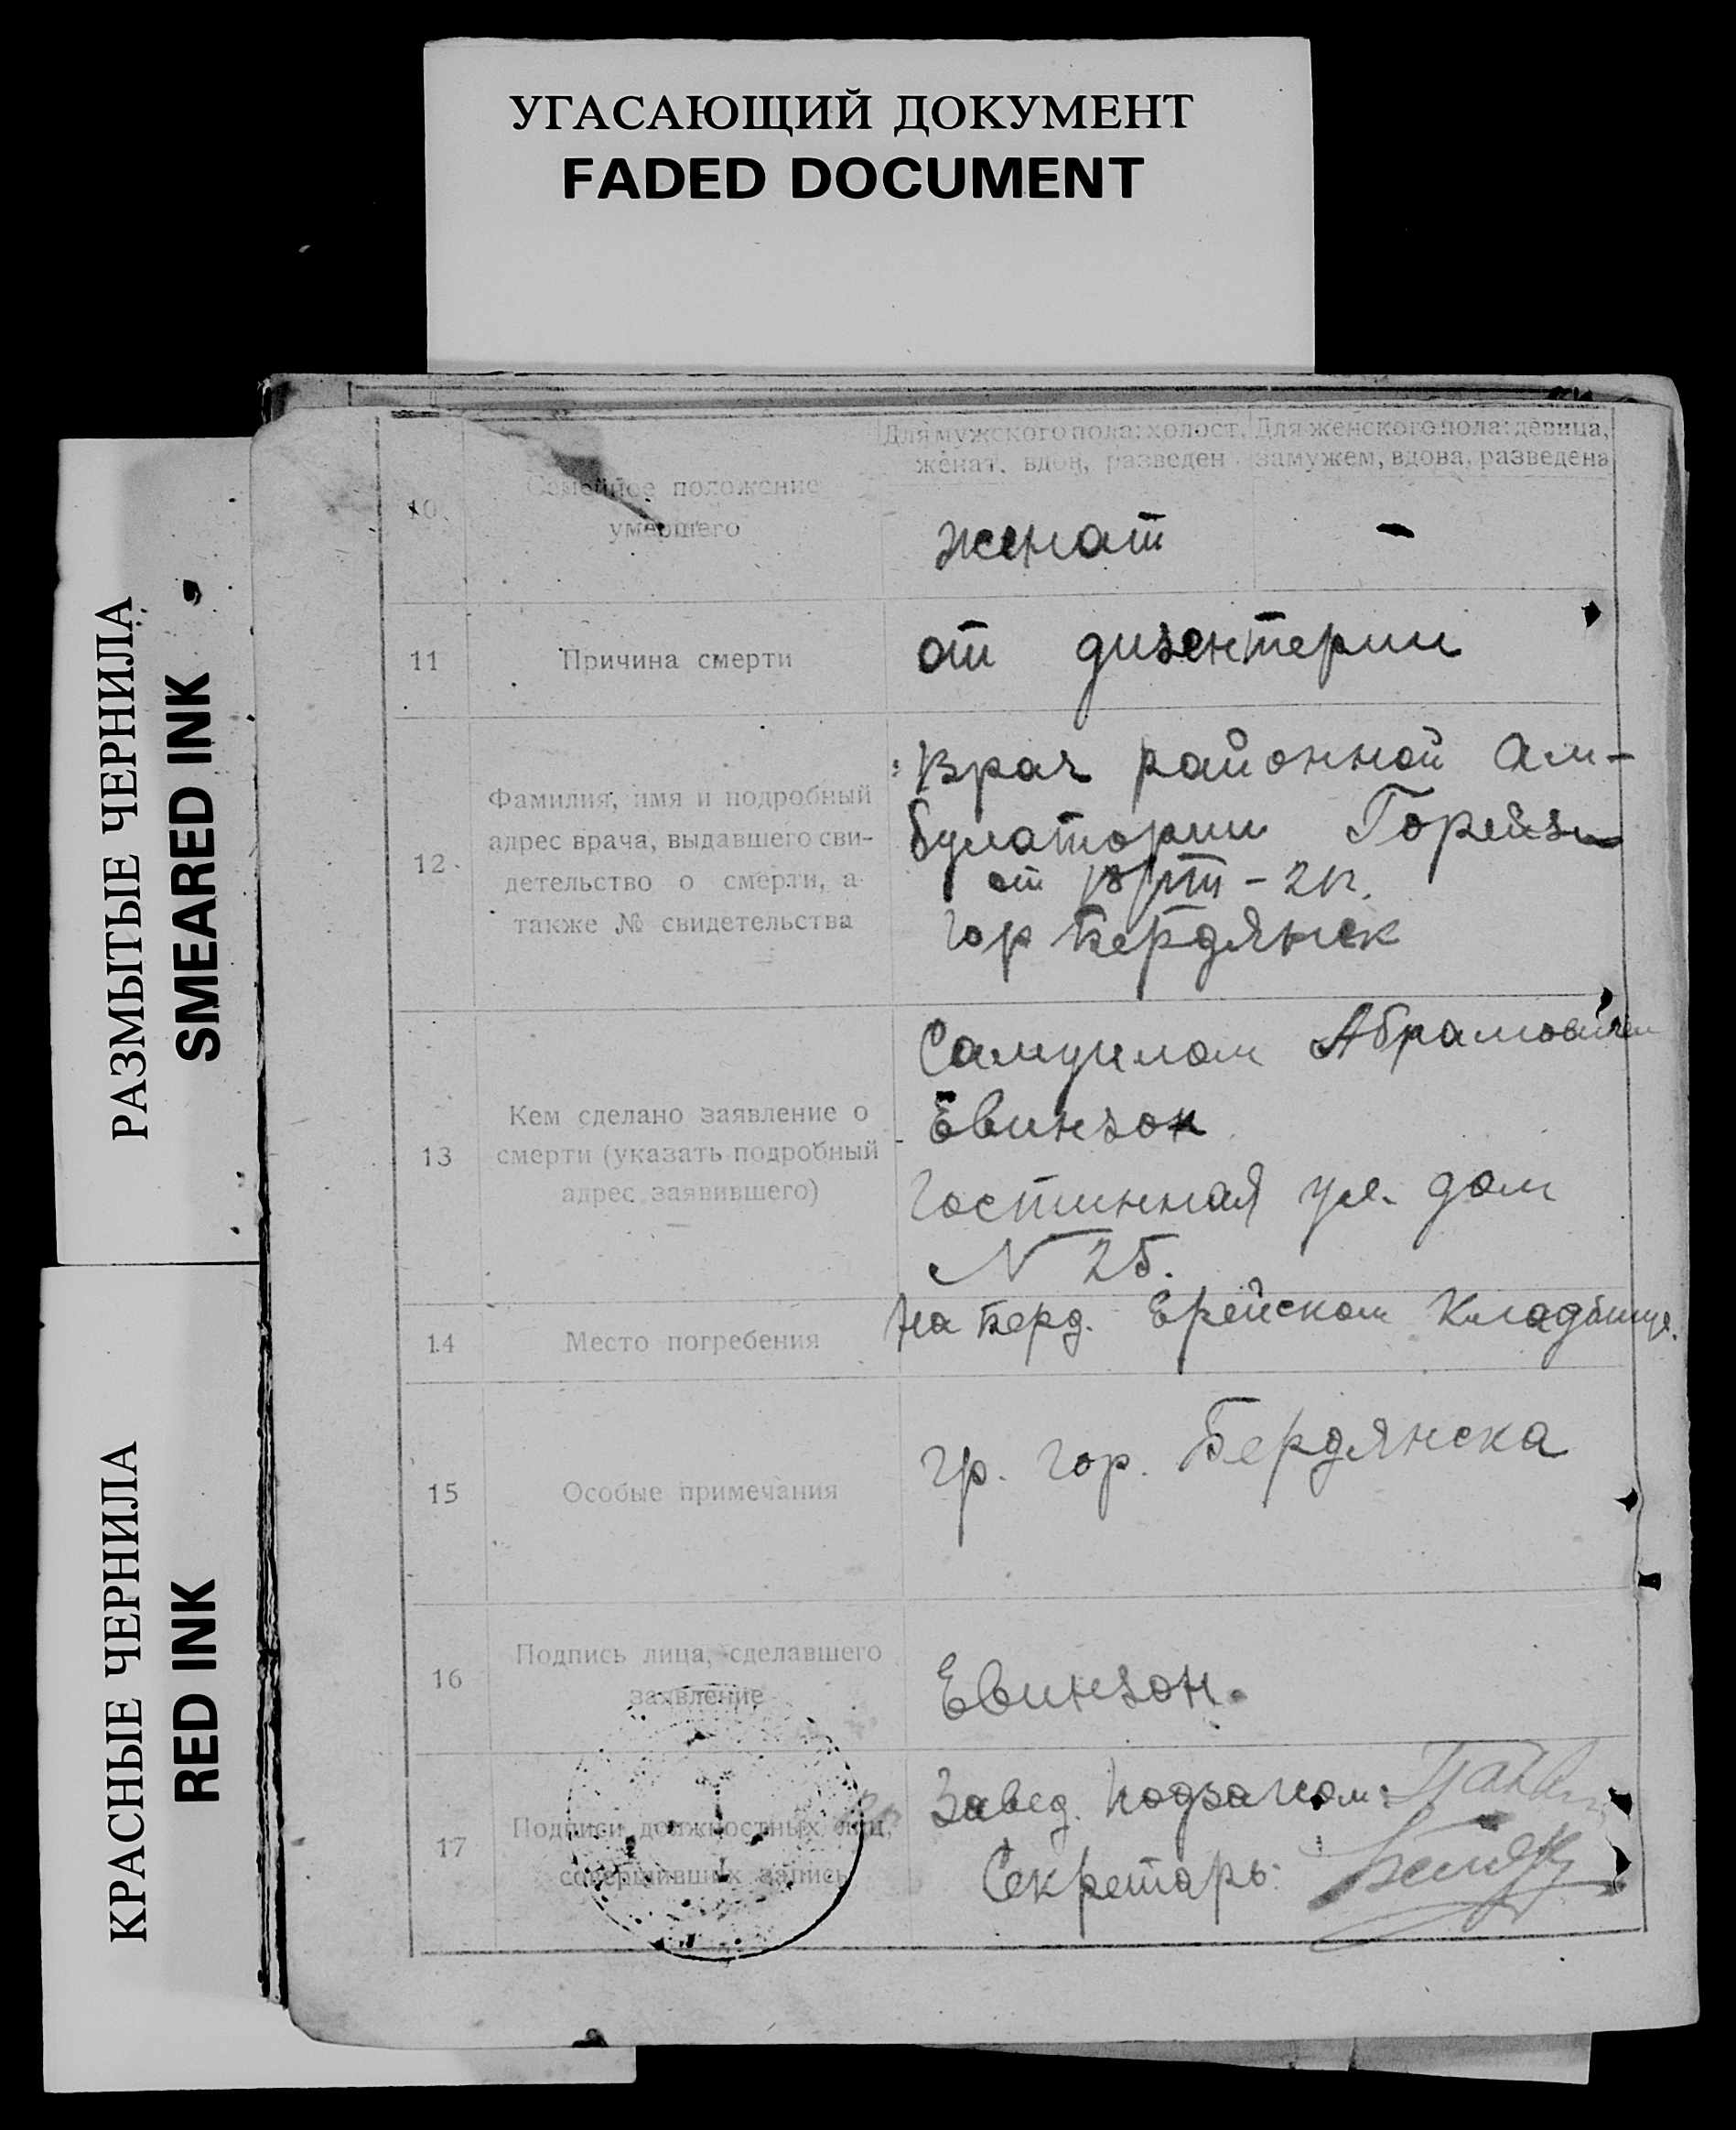 УГАСАЮЩИЙ ДОКУМЕНТ
FADED DOCUMENT
РАЗМЫТЫЕ ЧЕРНИЛА
SMEARED INK
КРАСНЫЕ ЧЕРНИЛА
RED INK
Для мужского пола: холост,
женат, вдов, разведен
Для женского пола: девица,
замужем, вдова, разведена
10
Семейное положение
умершего
женат
-
11
Причина смерти
от дизентерии
12
Фамилия, имя и подробный
адрес врача, выдавшего сви-
детельство о смерти, а
также № свидетельства
Врач районной Ам-
булатории
от
гор Бердянск
13
Кем сделано заявление о
смерти (указать подробный
адрес заявившего)
Самуилом Абрамовичем
Евинзон
Гостинная ул. дом
N 25.
14
Место погребения
На Берд. Ерейском Кладбище.
15
Особые примечания
гр. гор. Бердянска
16
Подпись лица, сделавшего
заявление
Евинзон.
17
Подписи должностных лиц,
совершивших запись
Завед. подзагсом:
Секретарь: